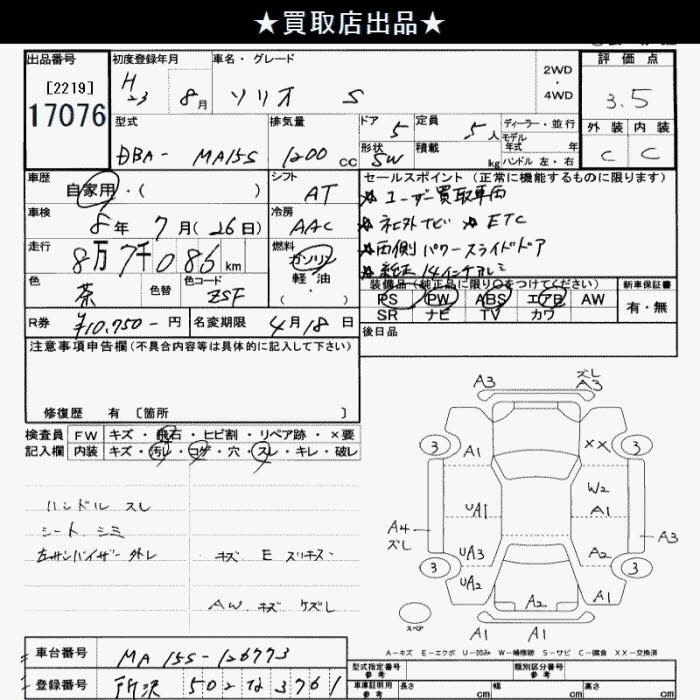 ★買取店出品★
出品番号
[2219]
17076
初度登録年月
H23 8月
車名・グレード
ソリオ S
2WD
・
4WD
評価点
3.5
外装 内装
C C
型式
DBA- MA15S
排気量
1200 cc
ドア 5
形状 SW
定員 5人
積載 kg
ディーラー・並行
モデル
年式 年
ハンドル 左・右
車歴
自家用・( )
シフト
AT
セールスポイント (正常に機能するものに限ります)
★ユーザー買取車両
★社外ナビ ★ETC
★両側パワースライドドア
★純正14インチアルミ
車検
8年 7月(26日)
冷房
AAC
走行
8万7千086km
燃料
ガソリン
軽油
( ・ )
色
茶
色替
色コード
ZSF
装備品(純正品に限り○をつけてください)
PS PW ABS エアB AW
SR ナビ TV カワ
新車保証書
有・無
R券 ¥10,750-円
名変期限 4月18日
後日品
注意事項申告欄(不具合内容等は具体的に記入して下さい)
修復歴 有 〔箇所 〕
検査員
記入欄
FW キズ・飛石・ヒビ割・リペア跡・×要
内装 キズ・汚レ・コゲ・穴・スレ・キレ・破レ
ハンドル スレ
シート シミ
左サンバイザー外レ
キズ E スリキズ
AW キズ ケズレ
A3
ズレ
A3
3
A1
XX
3
W2
UA1
A1
A4
ズレ
A3
UA3
A2
3
3
UA2
A2
A1
スペア
A1 A1
A-キズ E-エクボ U-凹み W-補修跡 S-サビ C-腐食 XX-交換済
車台番号 MA15S-126773
登録番号 所沢 502 す 3761
型式指定番号
参考
類別区分番号
参考
車庫証明用
参考
長さ cm
幅 cm
高さ cm